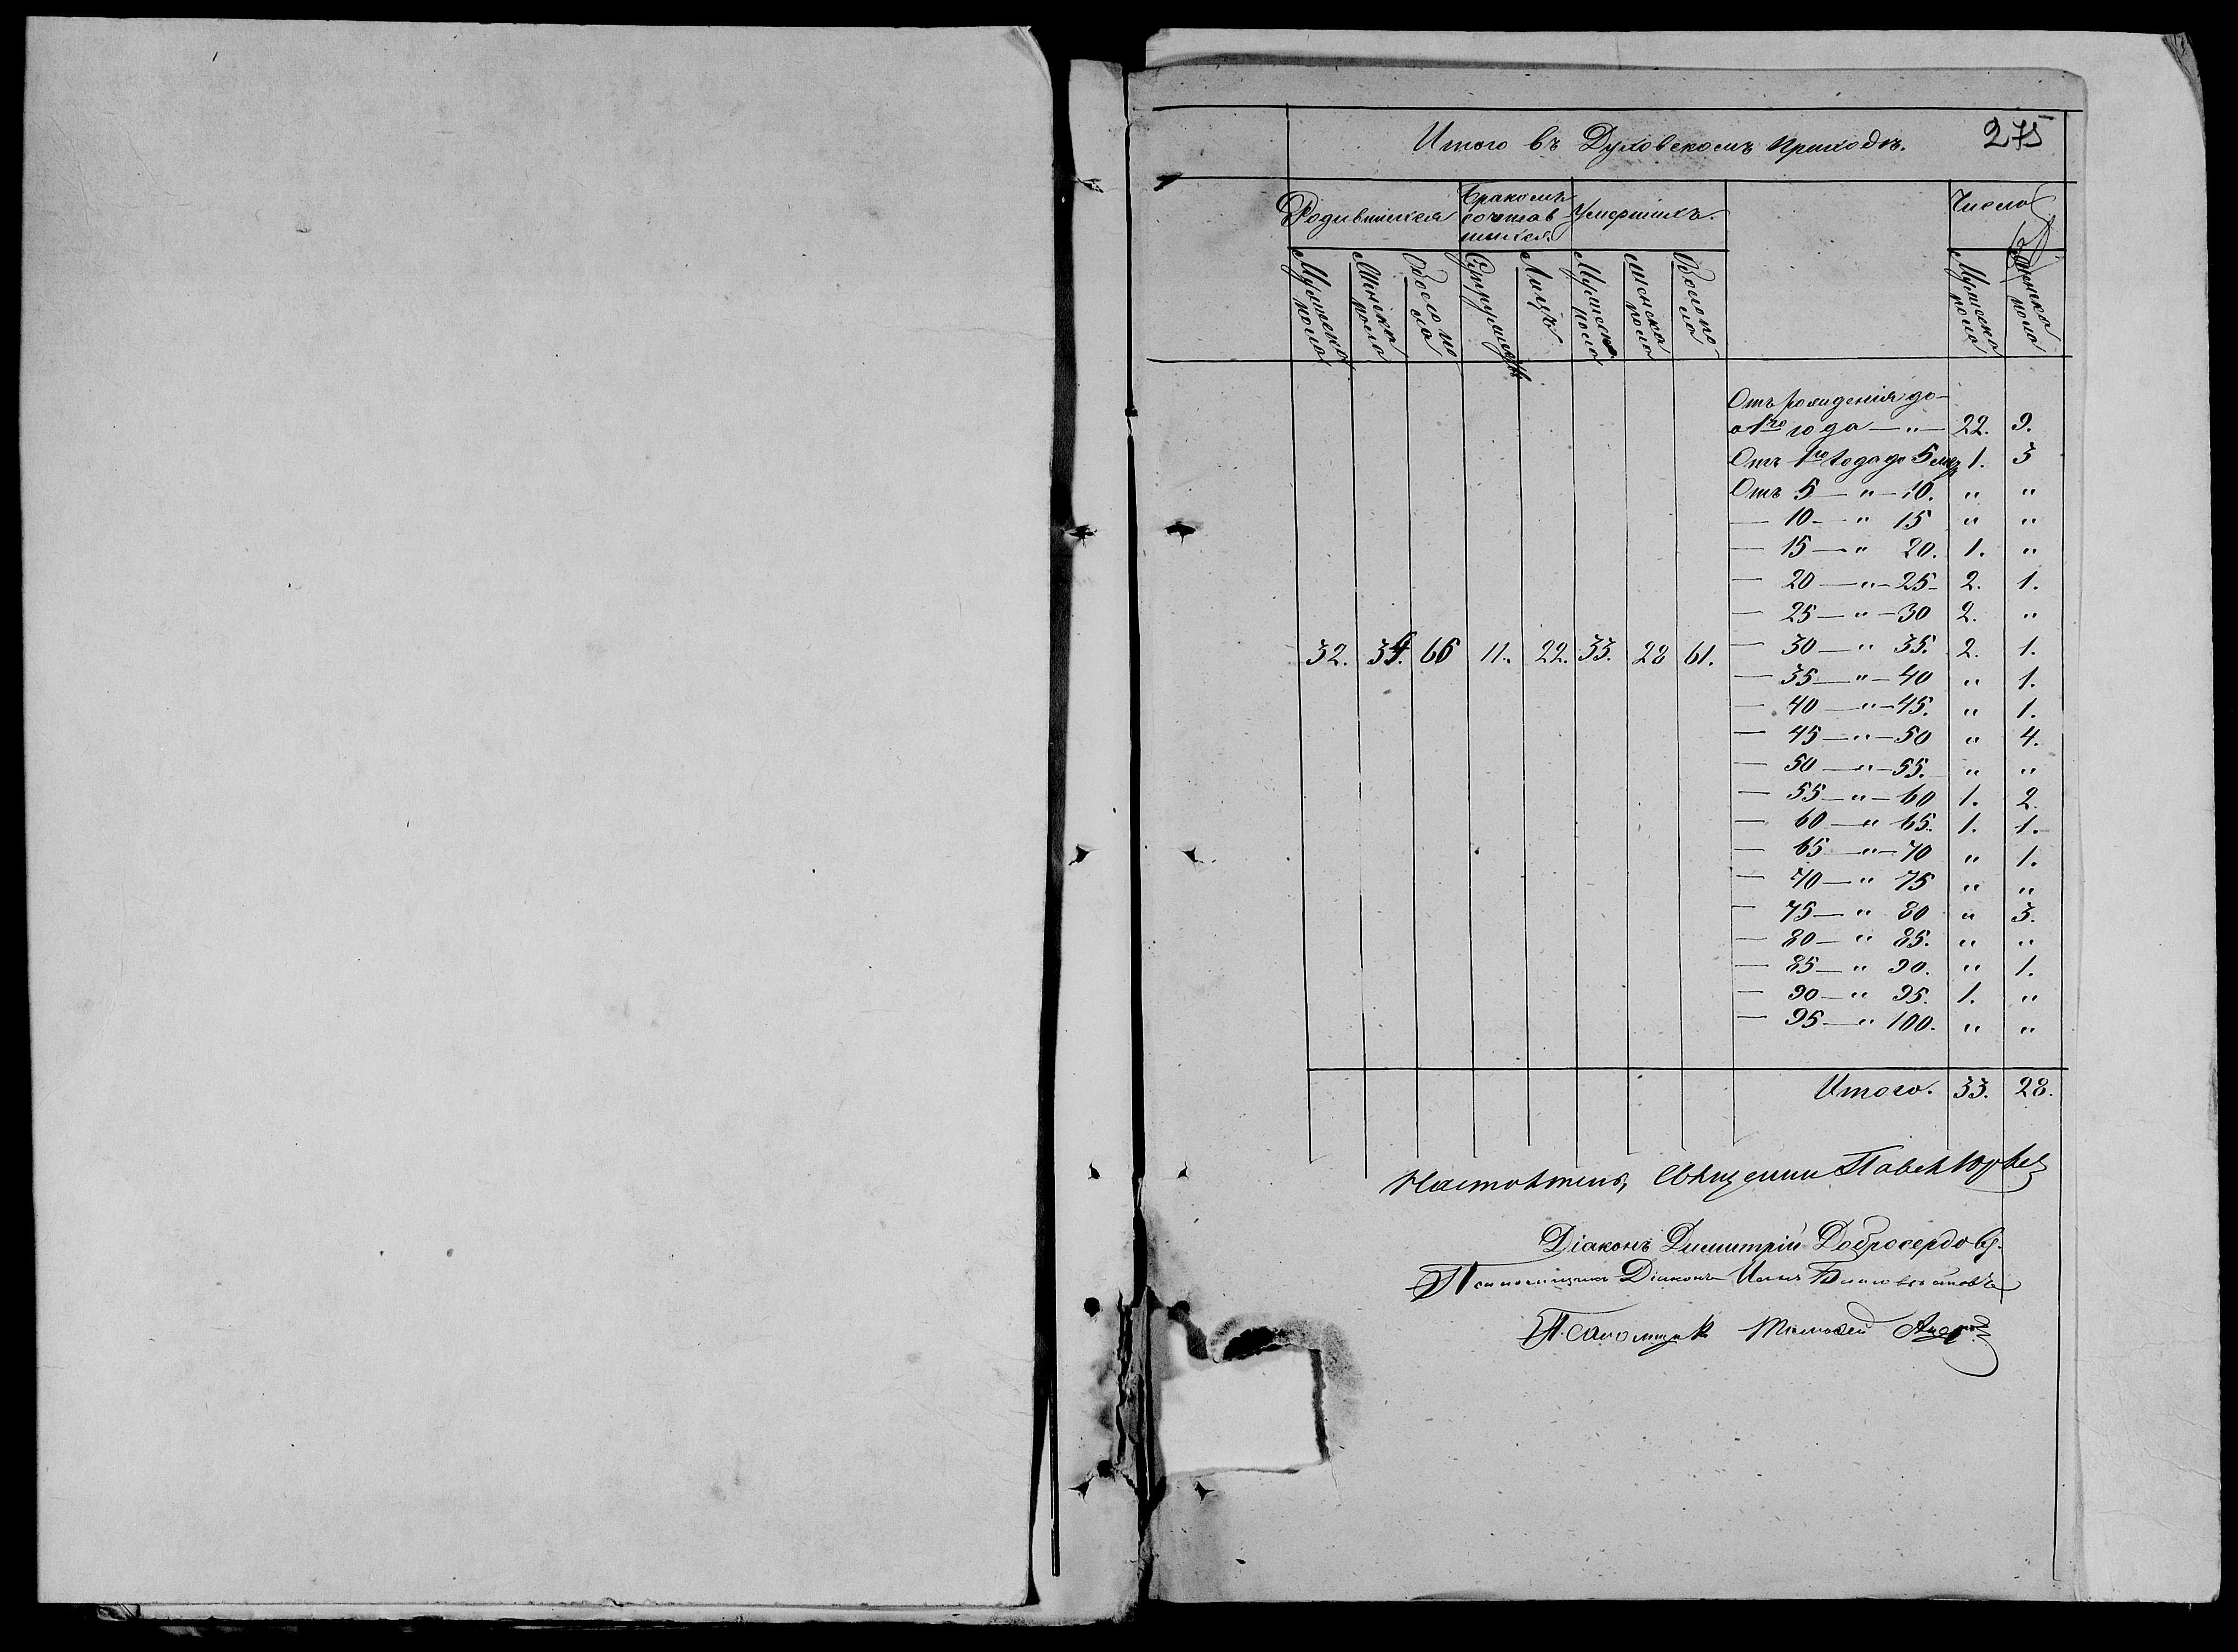 275
Итого въ Духовскомъ приходѣ.
Родившихся
Бракомъ
сочетав
шихся
Умершихъ.
Число
Мужеска
пола
Женска
пола
Обоего по
ла
Супружествъ
Лицъ
Мужеска
пола
Женска
пола
Обоего по-
ла
Мужеска
пола
Женска
пола
Отъ рожденія до-
1го года — " — 22. 9.
Отъ 1го года до 5 1. 3
Отъ 5 — " — 10. " "
— 10 — " 15 " "
— 15 — " 20. 1. "
— 20 — " — 25 2. 1.
— 25 — " — 30 2. "
— 30 — " 35. 2. 1.
32. 34. 66 11. 22. 33. 28 61.
— 35 — " — 40 " 1.
— 40 — " — 45. " 1.
— 45 — " — 50 " 4.
— 50 — " — 55. " "
— 55 — " — 60 1. 2.
— 60 — " 65. 1. 1.
— 65 — " — 70 " 1.
— 70 — " 75 " "
— 75 — " 80 " 3.
— 80 — " 85. " "
— 85 — " 90. " 1.
— 90 — " 95. 1. "
— 95 — " 100. " "
Итого. 33. 28.
Павел
Діаконъ Димитрій Добросердовъ.
Діаконъ
Псаломщик Тимофей